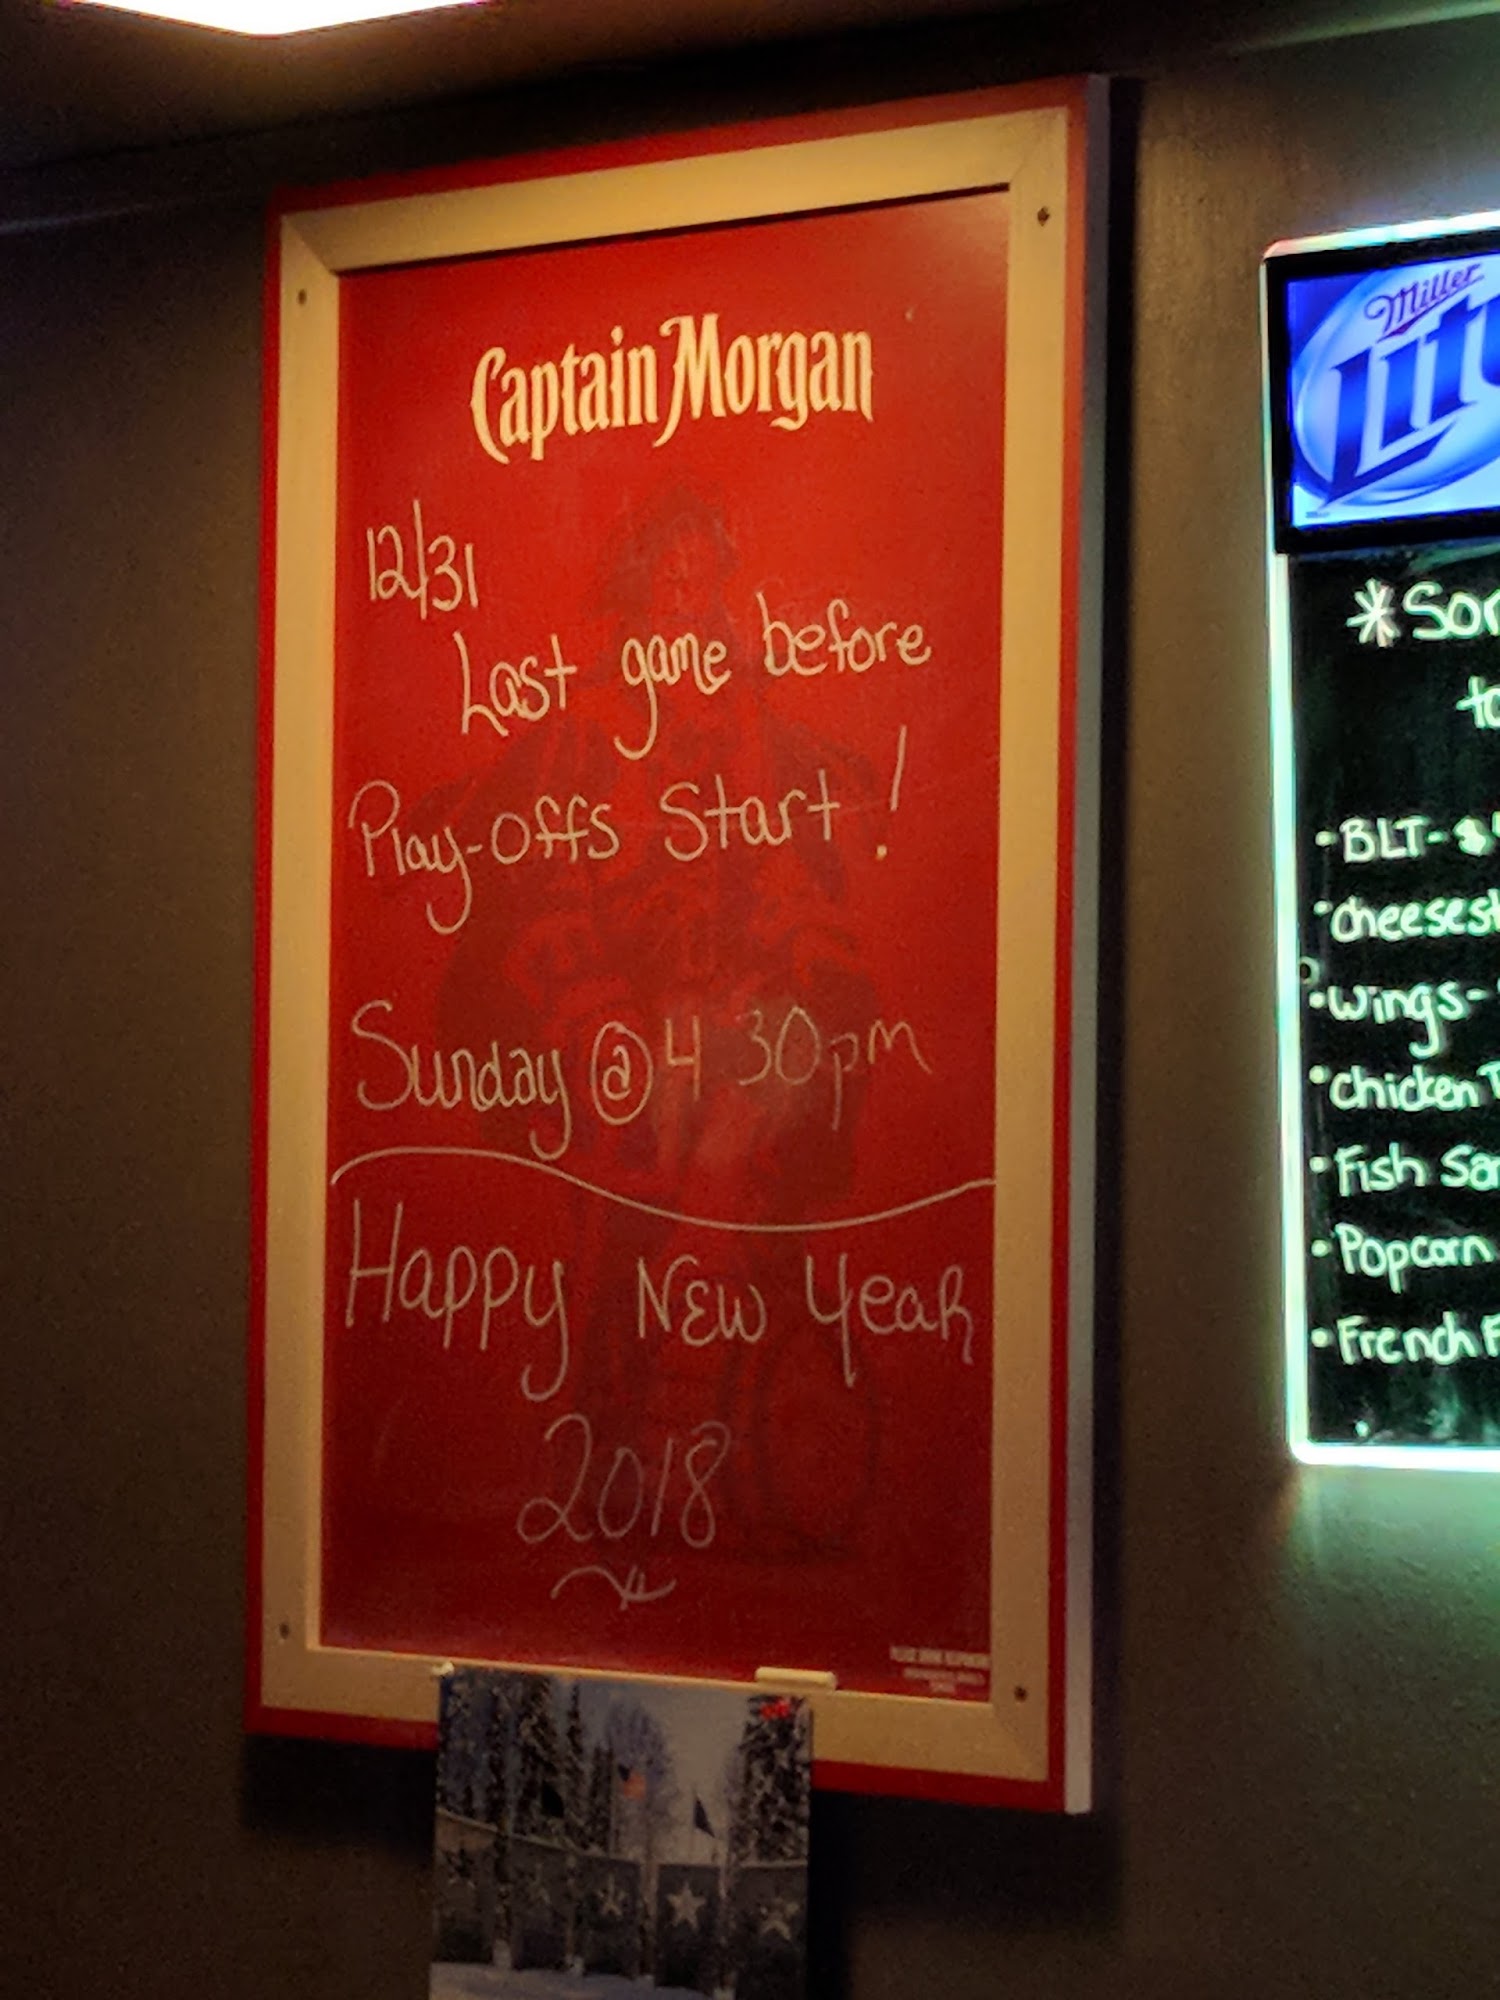 Captain Morgan
12/31
Last game before
Play-offs Start!
Sunday @ 4 30pm
Happy New Year
2018
PLEASE DRINK RESPONSIBLY
Miller
Lite
*Sor
to
• BLT - $
• Cheesest
• Wings -
• Chicken T
• Fish San
• Popcorn
• French F